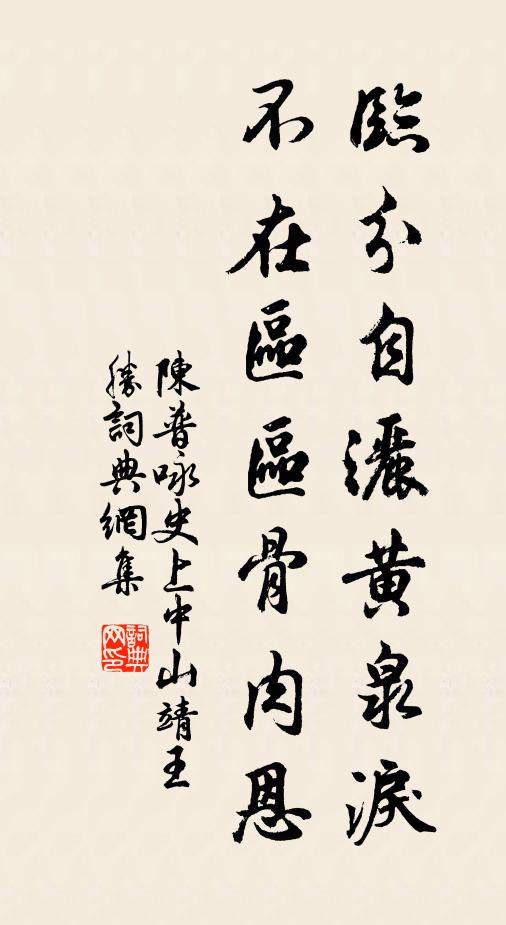 臨分自灑黃泉淚
不在區區骨肉恩
陳普咏史上中山靖王
勝詞典網集
詞典
网印